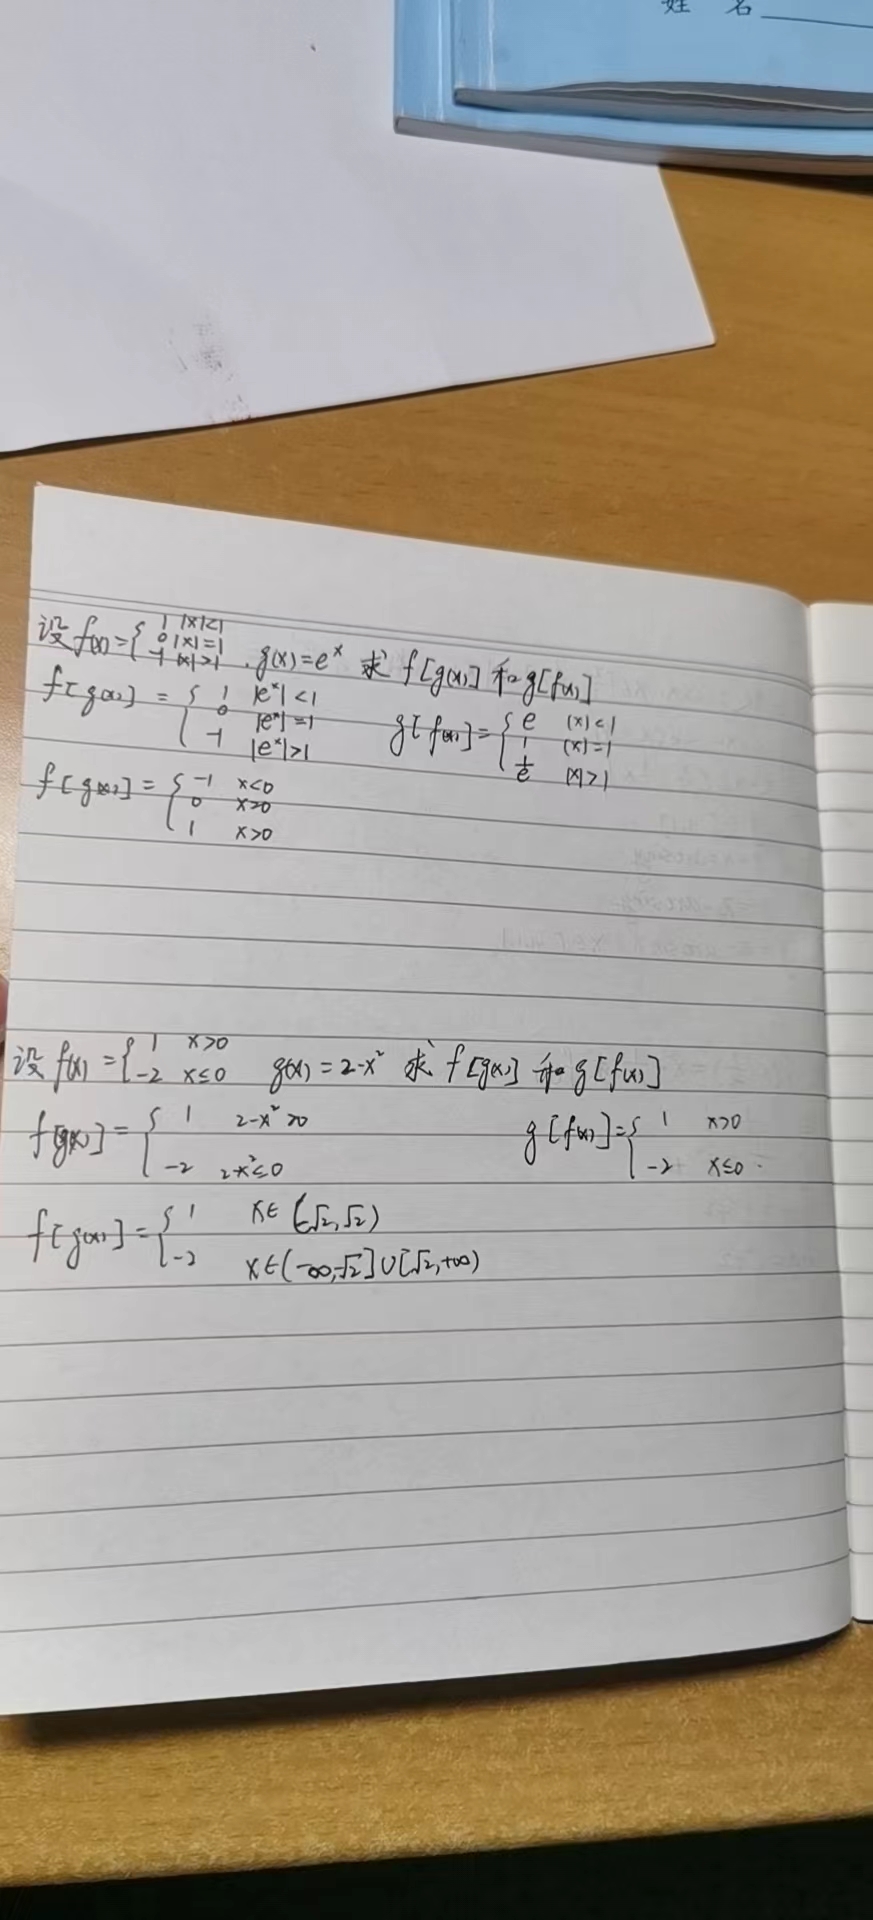 姓 名
设f(x)={ 1 |x|<1
0 |x|=1
-1 |x|>1 , g(x)=e^x 求 f[g(x)] 和 g[f(x)]
f[g(x)] = { 1 |e^x|<1
0 |e^x|=1
-1 |e^x|>1
g[f(x)]= { e |x|<1
1 |x|=1
1/e |x|>1
f[g(x)] = { -1 x<0
0 x>0
1 x>0
设 f(x) = { 1 x>0
-2 x≤0 g(x)=2-x² 求 f[g(x)] 和 g[f(x)]
f[g(x)] = { 1 2-x²>0
-2 2-x²≤0
g[f(x)]= { 1 x>0
-2 x≤0.
f[g(x)] = { 1 x∈(-√2,√2)
-2 x∈(-∞,-√2]∪[√2,+∞)